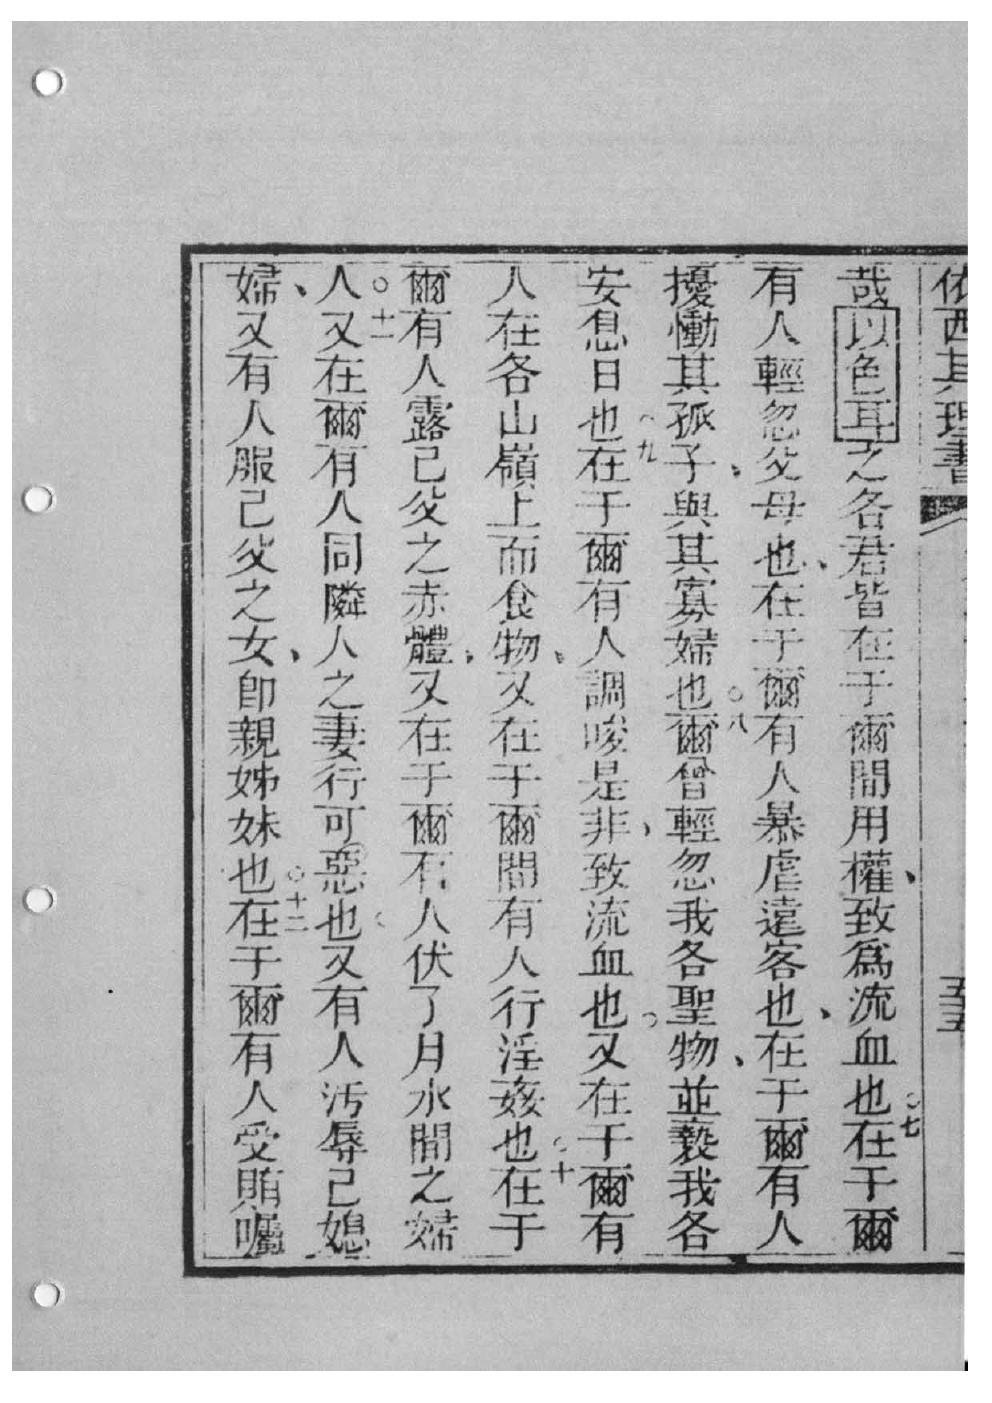 依西其理書 五十五
哉以色耳之各君皆在于爾間用權、致為流血也○七在于爾
有人輕忽父母也、在于爾有人暴虐遠客也、在于爾有人
擾慟其孤子、與其寡婦也○八爾曾輕忽我各聖物、並褻我各
安息日也○九在于爾有人調唆是非、致流血也○又在于爾有
人在各山嶺上而食物、又在于爾間有人行淫姦也○十在于
爾有人露己父之赤體、又在于爾有人伏了月水間之婦
人○十一又在爾有人同隣人之妻行可惡也又有人污辱己媳
婦、又有人服己父之女、卽親姊妹也○十二在于爾有人受賄囑